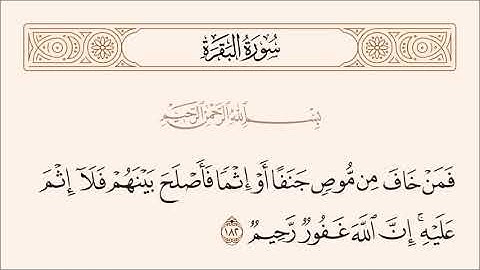 سُورَةُ البَقَرَةِ
بِسْمِ اللَّهِ الرَّحْمَٰنِ الرَّحِيمِ
فَمَنْ خَافَ مِن مُّوصٍ جَنَفًا أَوْ إِثْمًا فَأَصْلَحَ بَيْنَهُمْ فَلَآ إِثْمَ
عَلَيْهِ ۚ إِنَّ ٱللَّهَ غَفُورٌ رَّحِيمٌ ١٨٢